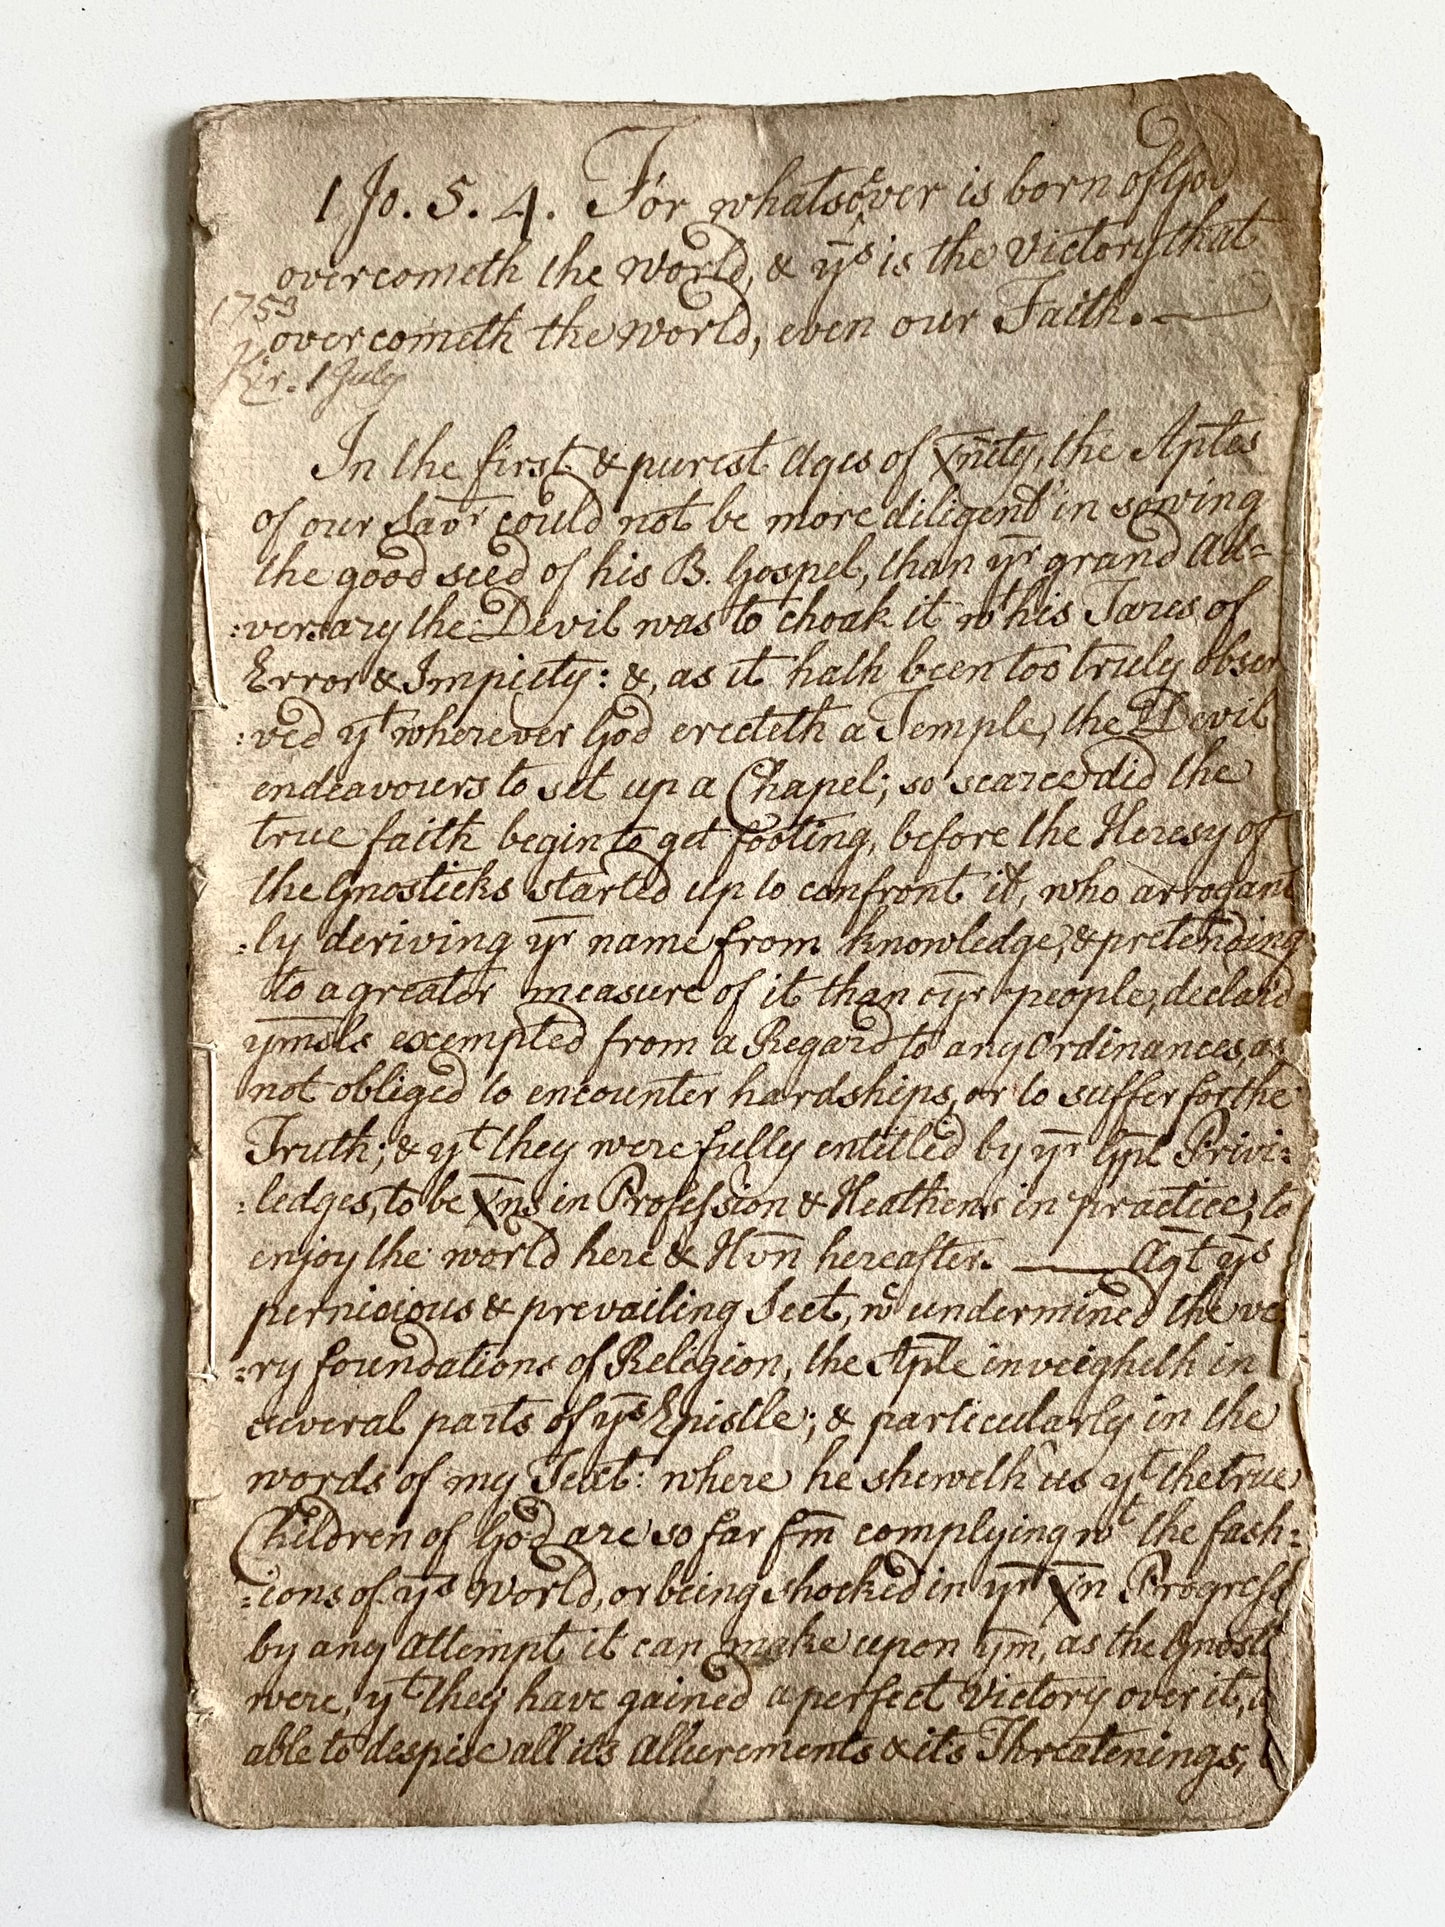 1 Jo. 5. 4. For whatsoever is born of God
overcometh the world, & ys is the victory that
1753
overcometh the world, even our Faith.
Kir. 1 July
In the first & purest Ages of Xnity, the Aptes
of our Savr could not be more diligent in sowing
the good seed of his B. Gospel, than yr grand Ad=
:versary the Devil was to choak it wt his Tares of
Error & Impiety: &, as it hath been too truly obser
:ved yt wherever God erecteth a Temple, the Devil
endeavours to set up a Chapel; so scarce did the
true faith begin to get footing, before the Heresy of
the Gnosticks started up to confront it, who arrogant
:ly deriving yr name from knowledge, & pretending
to a greater measure of it than oyr people, declar'd
ymsls exempted from a Regard to any Ordinances, as
not obliged to encounter hardships, or to suffer for the
Truth; & yt they were fully entitled by yr Gpl Privi:
:ledges, to be Xns in Profession & Heathens in practice, to
enjoy the world here & Hvn hereafter. Agt ys
pernicious & prevailing Sect, wc undermined the ve
:ry foundations of Religion, the Aple inveigheth in
several parts of ys Epistle; & particularly in the
words of my Text: where he sheweth us yt the true
Children of God are so far fm complying wt the fash:
:ions of ys World, or being shocked in yr Xn Progress
by any attempt it can make upon ym, as the Gnosti
were, yt they have gained a perfect Victory over it,
able to despise all its Allurements & its Threatenings,